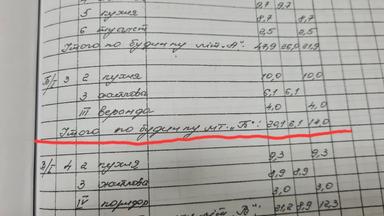 9,7 9,7
5 кухня 8,7 8,7
6 туалет 2,5 2,5
Итого по будинку літ. „А": 48,9 26,9
Б/І 3 2 кухня 10,0 10,0
3 житлова 6,1 6,1
ІІІ веранда 4,0 4,0
Итого по будинку літ. „Б": 20,1 6,1 14,0
В/І 4 2 кухня 9,3 9,3
3 житлова 8,9 8,9
ІV коридор 3,0 3,0
літ „В": 21,2 8,9 12,3